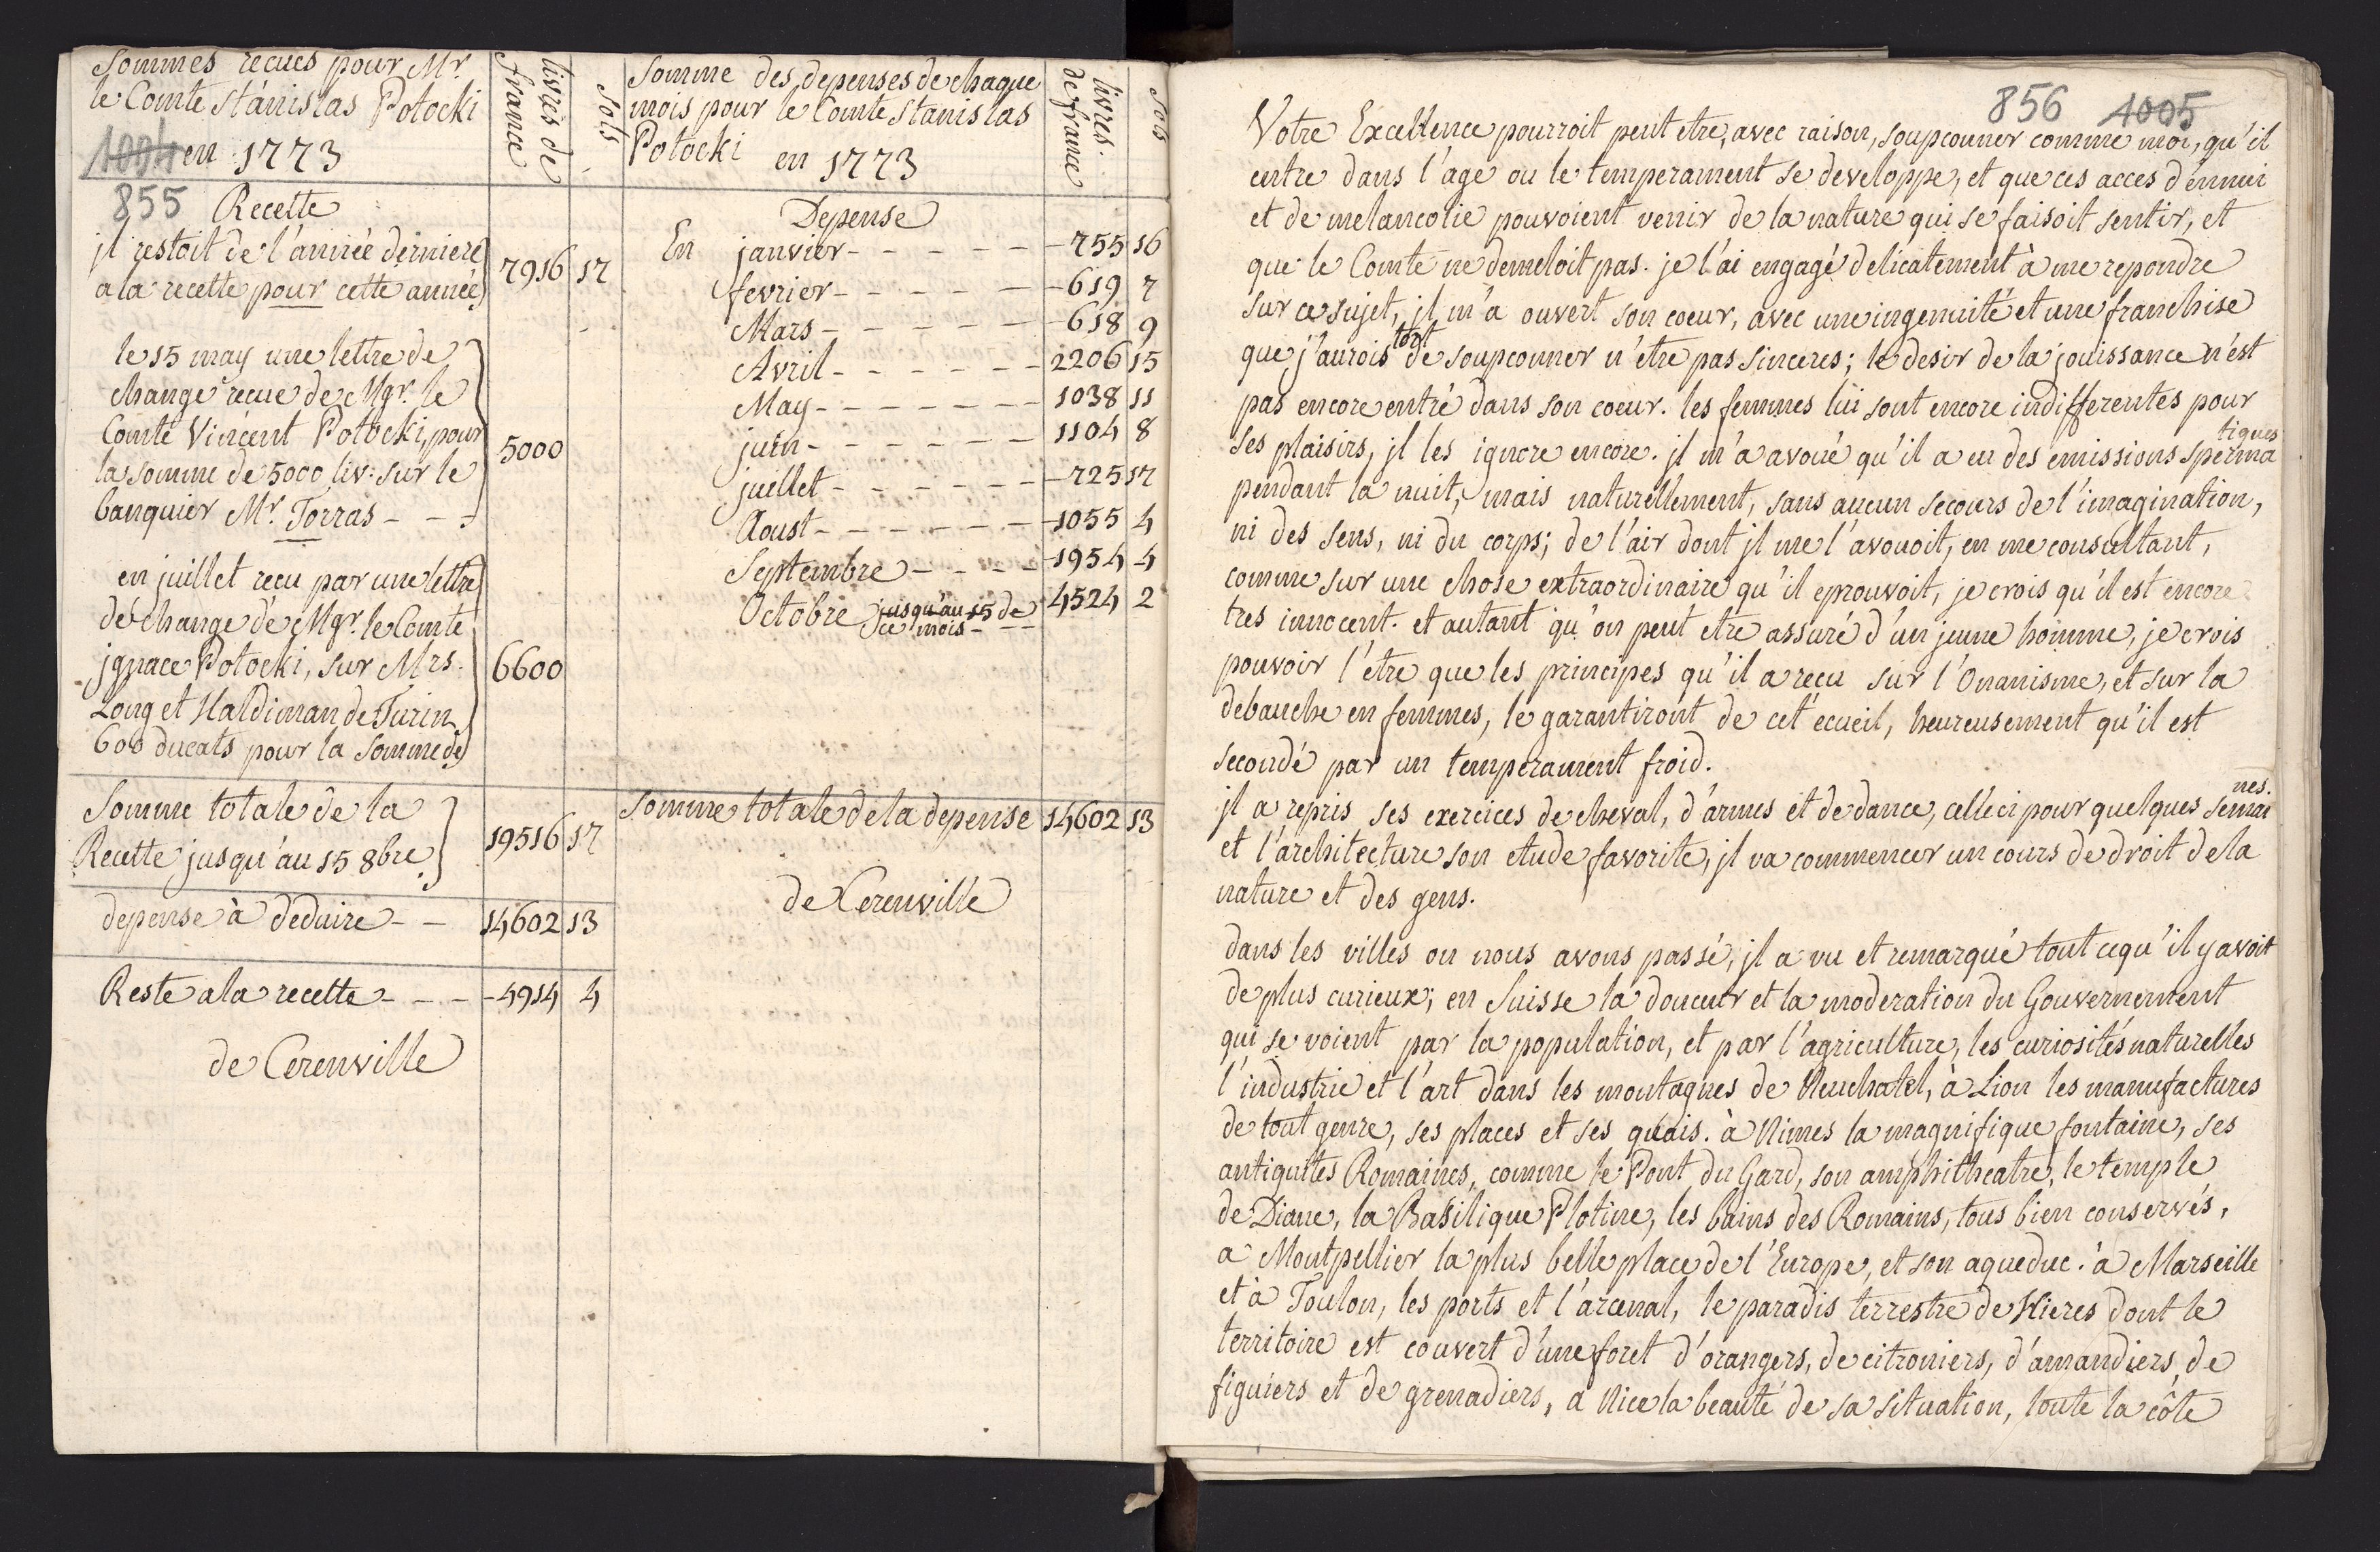 Sommes recues pour Mr.
le Comte Stanislas Potocki
1004 en 1773
855 Recette
livres de
france
sols
jl restoit de l'année derniere
a la recette pour cette année
7916 17
le 15 may une lettre de
change recue de Mgr. le
Comte Vincent Potocki, pour
la somme de 5000 liv: sur le
banquier Mr. Torras - - -
5000
en juillet recu par une lettre
de change de Mgr. le Comte
jgnace Potocki, sur Mrs.
Long et Haldiman de Turin
600 ducats pour la somme de
6600
Somme totale de la
Recette jusqu'au 15 8bre
19516 17
depense à deduire - - 14602 13
Reste a la recette - - - 4914 4
de Cerenville
Somme des depenses de chaque
mois pour le Comte Stanislas
Potocki en 1773
livres.
de france
sols
Depense
En janvier - - - - - - 755 16
fevrier - - - - - - 619 7
Mars - - - - - - 618 9
Avril - - - - - - 2206 15
May - - - - - - - 1038 11
juin - - - - - - 1104 8
juillet - - - - - - 725 17
Aoust - - - - - - 1055 4
Septembre - - - - 1954 4
Octobre jusqu'au 15 de ce mois - 4524 2
Somme totale de la depense 14602 13
de Cerenville
856 1005
Votre Excellence pourroit peut etre, avec raison, soupconner comme moi, qu'il
entre dans l'age ou le temperament se developpe, et que ces acces d'ennui
et de melancolie pouvoient venir de la nature qui se faisoit sentir, et
que le Comte ne demeloit pas. je l'ai engagé delicatement à me repondre
sur ce sujet, jl m'a ouvert son coeur, avec une ingenuité et une franchise
que j'aurois tort de soupconner n'etre pas sinceres; le desir de la jouissance n'est
pas encore entré dans son coeur. les femmes lui sont encore indifferentes pour
ses plaisirs, jl les ignore encore. jl m'a avoué qu'il a eu des emissions spermatiques
pendant la nuit, mais naturellement, sans aucun secours de l'imagination,
ni des sens, ni du corps; de l'air dont jl me l'avouoit, en me consultant,
comme sur une chose extraordinaire qu'il eprouvoit, je crois qu'il est encore
tres innocent. et autant qu'on peut etre assuré d'un jeune homme, je crois
pouvoir l'etre que les principes qu'il a recu sur l'Onanisme, et sur la
debauche en femmes, le garantiront de cet ecueil, heureusement qu'il est
secondé par un temperament froid.
jl a repris ses exercices de cheval, d'armes et de dance, celle ci pour quelques semaines.
et l'architecture son etude favorite, jl va commencer un cours de droit de la
nature et des gens.
dans les villes ou nous avons passé, jl a vu et remarqué tout ce qu'il y avoit
de plus curieux; en Suisse la douceur et la moderation du Gouvernement
qui se voient par la population, et par l'agriculture, les curiosités naturelles
l'industrie et l'art dans les montagnes de Neuchatel, à Lion les manufactures
de tout genre, ses places et ses quais. à Nimes la magnifique fontaine, ses
antiquites Romaines, comme le Pont du Gard, son amphitheatre, le temple
de Diane, la Basilique Plotine, les bains des Romains, tous bien conservés,
a Montpellier la plus belle place de l'Europe, et son aqueduc. à Marseille
et à Toulon, les ports et l'arcenal, le paradis terrestre de Hieres dont le
territoire est couvert d'une foret d'orangers, de citroniers, d'amandiers, de
figuiers et de grenadiers, a Nice la beauté de sa situation, toute la côte